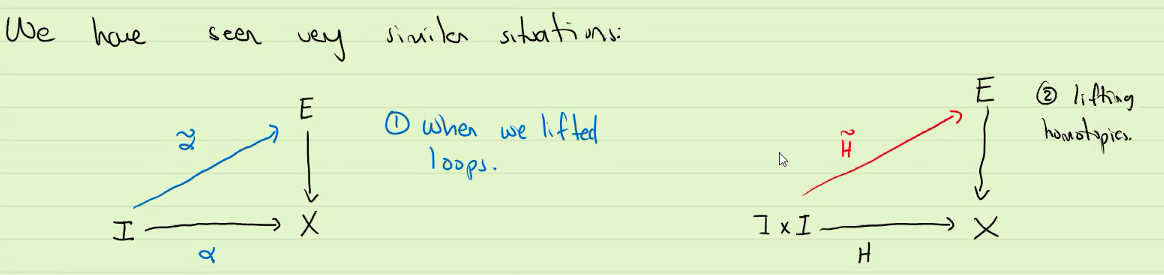 We have seen very similar situations:
E
α̃
① When we lifted
loops.
I
X
α
E
② lifting
homotopies.
H̃
I x I
X
H